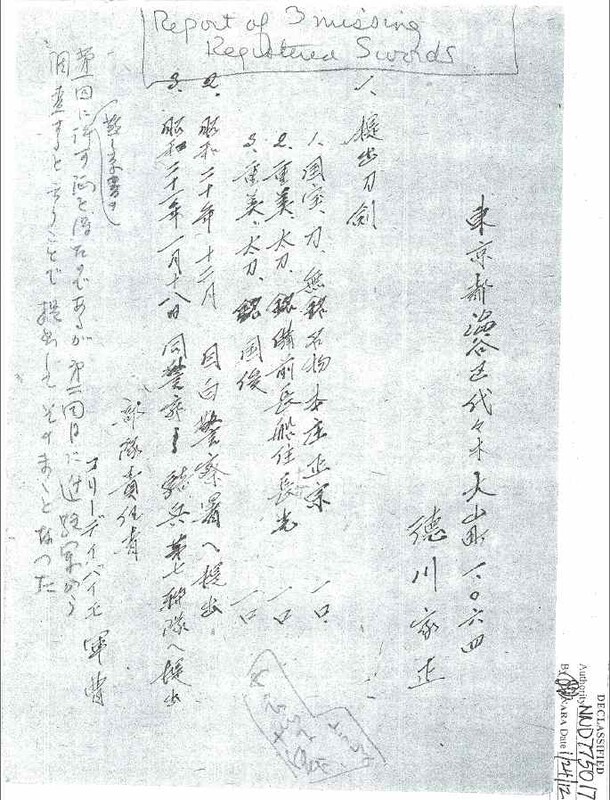 Report of 3 missing
Registered Swords
東京都澁谷区代々木大山町一〇六四
徳川家正
一、提出刀剣
1、国宝、刀、無銘名物本庄正宗 一口
2、重美、太刀、銘備前長船住長光 一口
3、重美、太刀、銘国俊 一口
2、昭和二十年十二月 目白警察署へ提出
3、昭和二十一年一月十八日 同警察ヨリ騎兵第七聯隊へ提出
部隊責任者
コリーデイバイモ 軍曹
のであるが第二回目に進駐軍から
調査すると云うことで提出してそのまゝとなつた
DECLASSIFIED
Authority NND 775017
By NARA Date 1/24/12